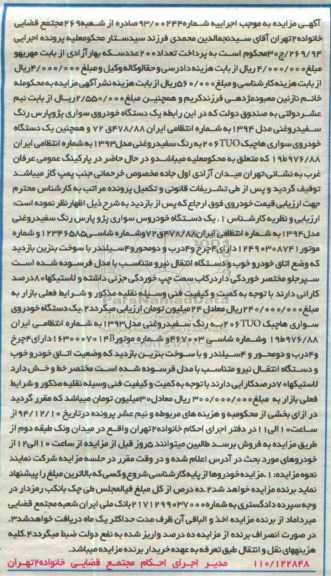 آگهی مزایده به موجب اجراییه شماره ۹۳/۰۰۲۴۴ صادره از شعبه ۲۶۹ مجتمع قضایی
خانواده ۲ تهران آقای سیدنجم‌الدین محمدی فرزند سیدستار محکوم‌علیه پرونده اجرایی
۲۶۹/۹۴/ج۳ محکوم است به پرداخت تعداد ۲۰۰ عدد سکه بهار آزادی از بابت مهریه و
مبلغ ۴/۰۰۰/۰۰۰ ریال از بابت هزینه دادرسی و حق‌الوکاله وکیل و مبلغ ۴/۰۰۰/۰۰۰ ریال
از بابت هزینه کارشناسی و مبلغ ۵۶۰/۰۰۰ ریال از بابت هزینه نشر آگهی مزایده به محکوم‌له
خانم نازنین معبودمژدهی فرزند کریم و همچنین مبلغ ۲/۵۵۰/۰۰۰ ریال از بابت نیم
عشر دولتی به صندوق دولت که در این رابطه یک دستگاه خودروی سواری پژو پارس رنگ
سفید روغنی مدل ۱۳۹۴ به شماره انتظامی ایران ۷۲ ق ۴۷۸/۸۸ و همچنین یک دستگاه
خودروی سواری هاچبک TUO۵ ۲۰۶ به رنگ سفید روغنی مدل ۱۳۹۳ به شماره انتظامی ایران
۹۷۶/۸۸ ب ۱۹ که متعلق به محکوم‌علیه میباشد و در حال حاضر در پارکینگ عمومی عرفان
غرب به نشانی تهران میدان آزادی اول جاده مخصوص خرحمانی جنب پمپ گاز میباشد
توقیف گردید و پس از طی تشریفات قانونی و تکمیل پرونده مراتب به کارشناس محترم
جهت ارزیابی قیمت خودروی فوق ارجاع که پس از بازدید به شرح ذیل اظهارنظر نموده است،
ارزیابی و نظریه کارشناس ۱. یک دستگاه خودروس سواری پژو پارس رنگ سفید روغنی
مدل ۱۳۹۴ به شماره انتظامی ایران ۴۷۸/۸۸ ق ۷۲ و شماره شاسی ۱۲۳۴۶۵۸۵ و شماره
موتور ۱۲۴۹۰۳۰۸۷۴۱ دارای ۴ چرخ و ۴ درب و ۲ محور و ۴ سیلندر با سوخت بنزین بازدید
که وضع اتاق خودرو خوب و دستگاه انتقال نیرو متناسب با مدل فرسوده شده است
سپر جلو مختصر خوردگی دارد رکاب سمت چپ خوردگی جزئی داشته و لاستیکها ۸۰ درصد
کارائی دارند با توجه به کمیت و کیفیت فنی وسیله نقلیه مذکور و شرایط فعلی بازار به
مبلغ ۲۴۰/۰۰۰/۰۰۰ ریال معادل ۲۴ میلیون تومان ارزیابی میگردد. ۲. یک دستگاه خودروی
سواری هاچبک TUO۵ ۲۰۶ به رنگ سفید روغنی مدل ۱۳۹۳ به شماره انتظامی ایران
۹۷۶/۸۸ ب ۱۹ وشماره شاسی ۴۶۷۰۰۳ و شماره موتور ۱۶۳B۰۰۰۷۰۱۴ دارای ۴ چرخ
و ۴ درب و ۲ محور و ۴ سیلندر و با سوخت بنزین بازدید که وضعیت اتاق خودرو خوب
و دستگاه انتقال نیرو متناسب با مدل فرسوده شده است مختصر خط و خش دارد
لاستیکها ۷۰ درصد کارایی دارند با توجه به کمیت و کیفیت فنی وسیله نقلیه مذکور و شرایط
فعلی بازار به مبلغ ۳۰۰/۰۰۰/۰۰۰ ریال معادل ۳۰ میلیون تومان میباشد که مقرر گردید
در ازای بخشی از محکوم‌به و هزینه های مربوطه و نیم عشر پرونده در تاریخ ۹۴/۱۲/۱۰ از
ساعت ۱۰ الی ۱۱ در دفتر اجرای احکام خانواده ۲ تهران واقع در میدان ونک طبقه دوم از
طریق مزایده به فروش برسد طالبین میتوانند ۵ روز قبل از مزایده از ساعت ۱۰ الی ۱۲ از
خودروهای مورد بحث در آدرس اعلام شده و در وقت مقرر در جلسه مزایده شرکت نمایند
نحوه مزایده: ۱. مزایده خودروها از پایه کارشناسی شروع و کسی که بالاترین مبلغ را پیشنهاد
نماید برنده مزایده خواهد شد ۲. ده درصد از کل مبلغ فی‌المجلس طی چک بانکی رمزدار در
وجه سپرده دادگستری به شماره ۲۱۷۱۲۹۹۰۳۷۰۰۰ بانک ملی ایران شعبه مجتمع قضایی
میرداماد از برنده مزایده اخذ و الباقی آن ظرف مدت حداکثر یک ماه دریافت خواهد شد ۳.
در صورت انصراف برنده از مزایده ده درصد واریز شده به نفع دولت ضبط میگردد ۴. کلیه
هزینه‌های نقل و انتقال طبق تعرفه به عهده خریدار برنده مزایده میباشد.
۱۱۰/۱۲۲۸۴۸ مدیر اجرای احکام مجتمع قضایی خانواده ۲ تهران